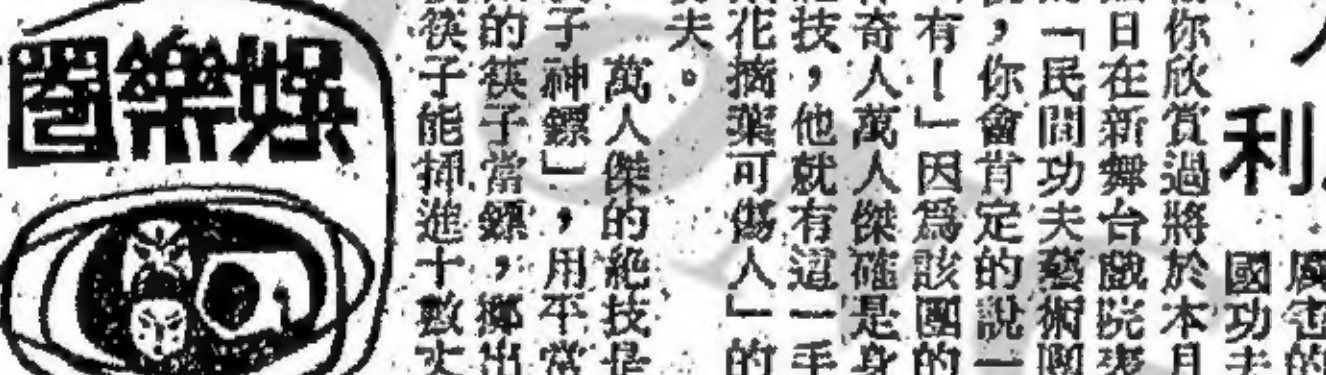 利
國功夫
你欣賞過將於本月
日在新舞台戲院表
「民間功夫藝術團
,你會肯定的說一
有!」因爲該團的
奇人萬人傑確是身
技,他就有這一手
花摘葉可傷人」的
夫。
萬人傑的絶技是
子神鏢」,用平常
的筷子當鏢,擲出
筷子能插進十數丈
娛樂圈